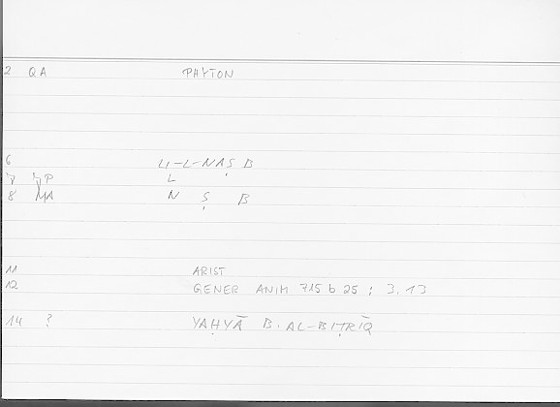 2 QA PHYTON
6 LI-L-NAṢ B
7 ꜤP L
8 MA N Ṣ B
11 ARIST
12 GENER ANIM 715 b 25 ; 3.13
14 ? YAḤYĀ B. AL-BIṬRĪQ